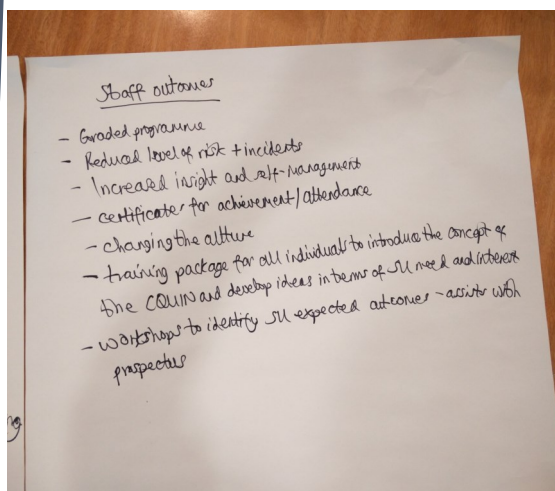 Staff outcomes
- Graded programme
- Reduced level of risk + incidents
- Increased insight and self-management
- certificates for achievement/attendance
- changing the culture
- training package for all individuals to introduce the concept of
the CQUIN and develop ideas in terms of SU need and interest
- workshops to identify SU expected outcomes - assists with
prospectus